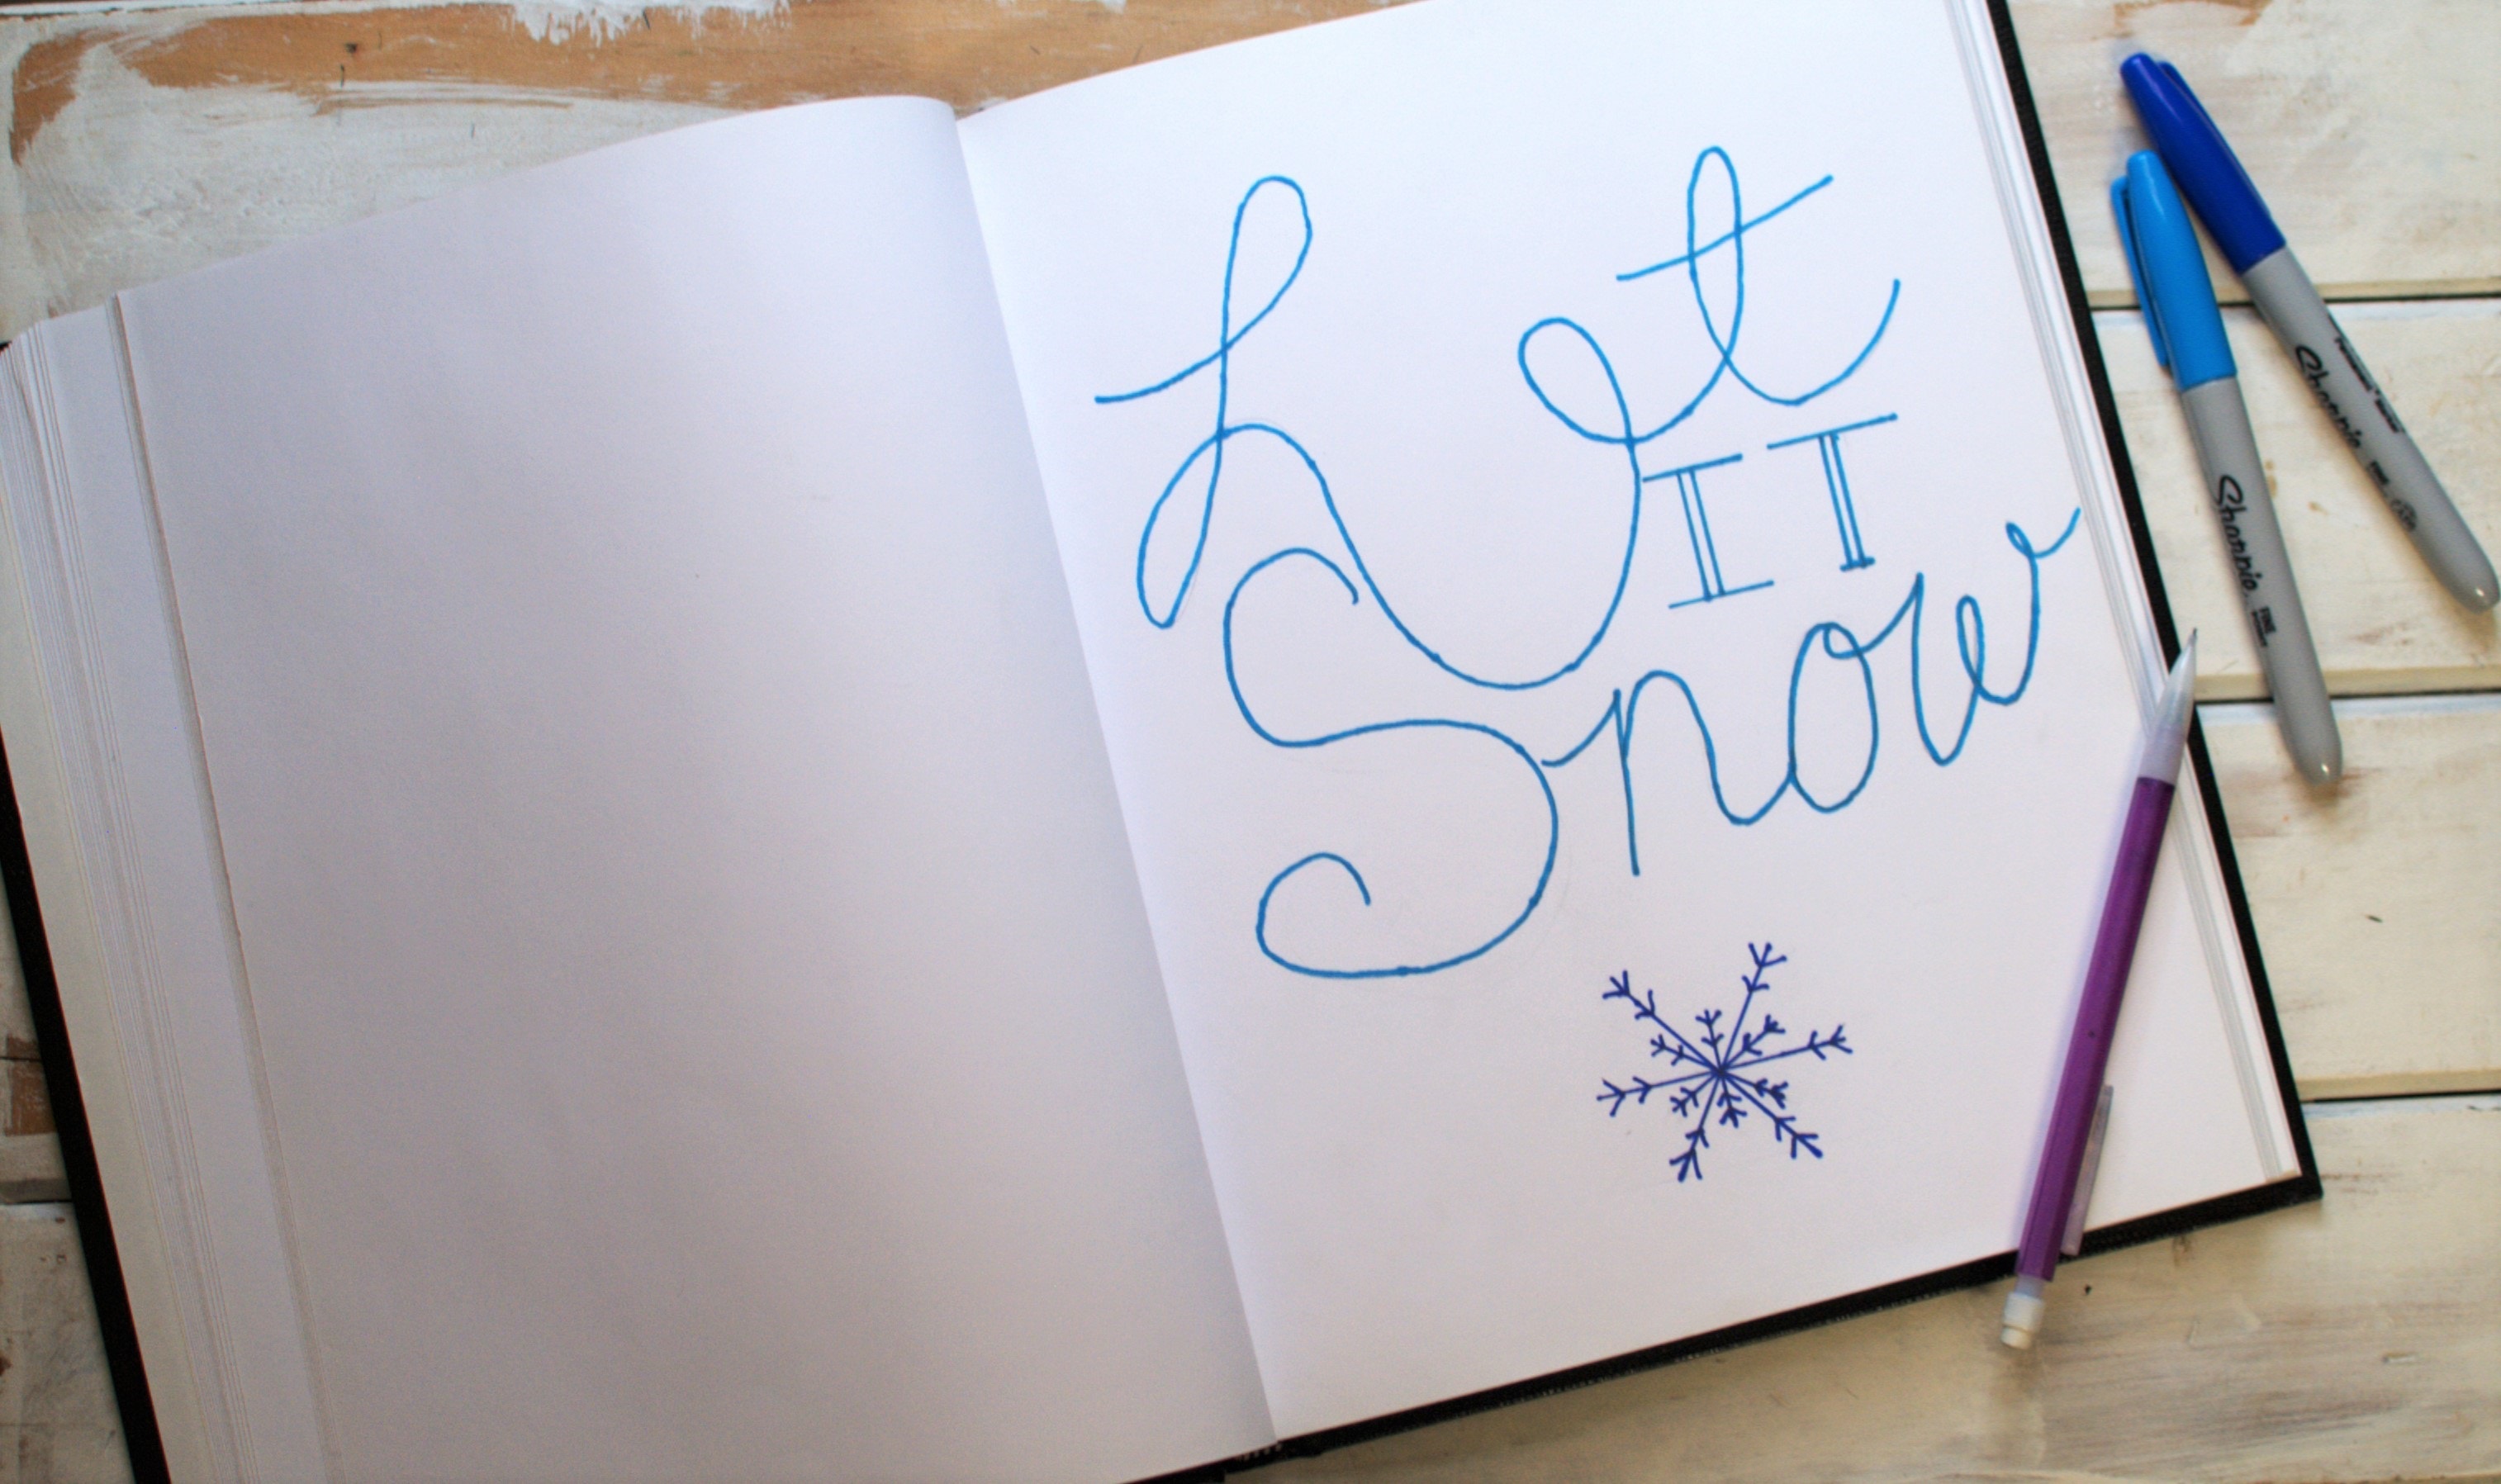 Let
IT
Snow
Sharpie
FINE
Sharpie